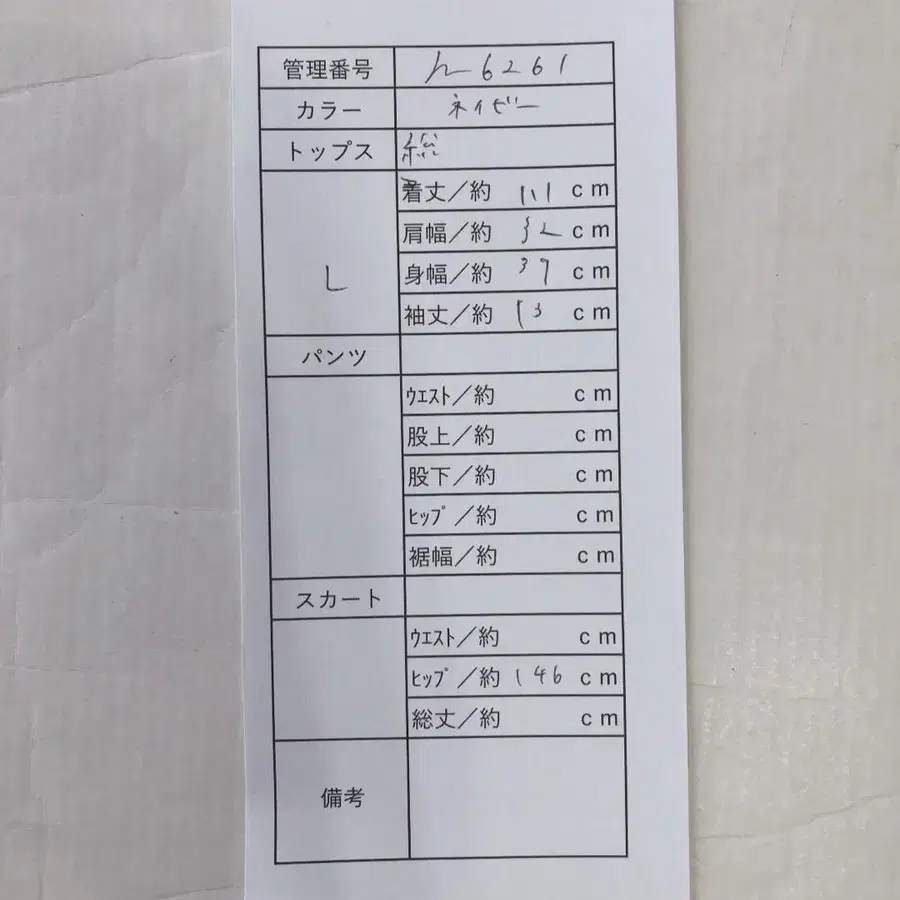 管理番号 h6261
カラー ネイビー
トップス 総
L
着丈／約 111 cm
肩幅／約 32 cm
身幅／約 37 cm
袖丈／約 13 cm
パンツ
ｳｴｽﾄ／約 cm
股上／約 cm
股下／約 cm
ﾋｯﾌﾟ／約 cm
裾幅／約 cm
スカート
ｳｴｽﾄ／約 cm
ﾋｯﾌﾟ／約 146 cm
総丈／約 cm
備考